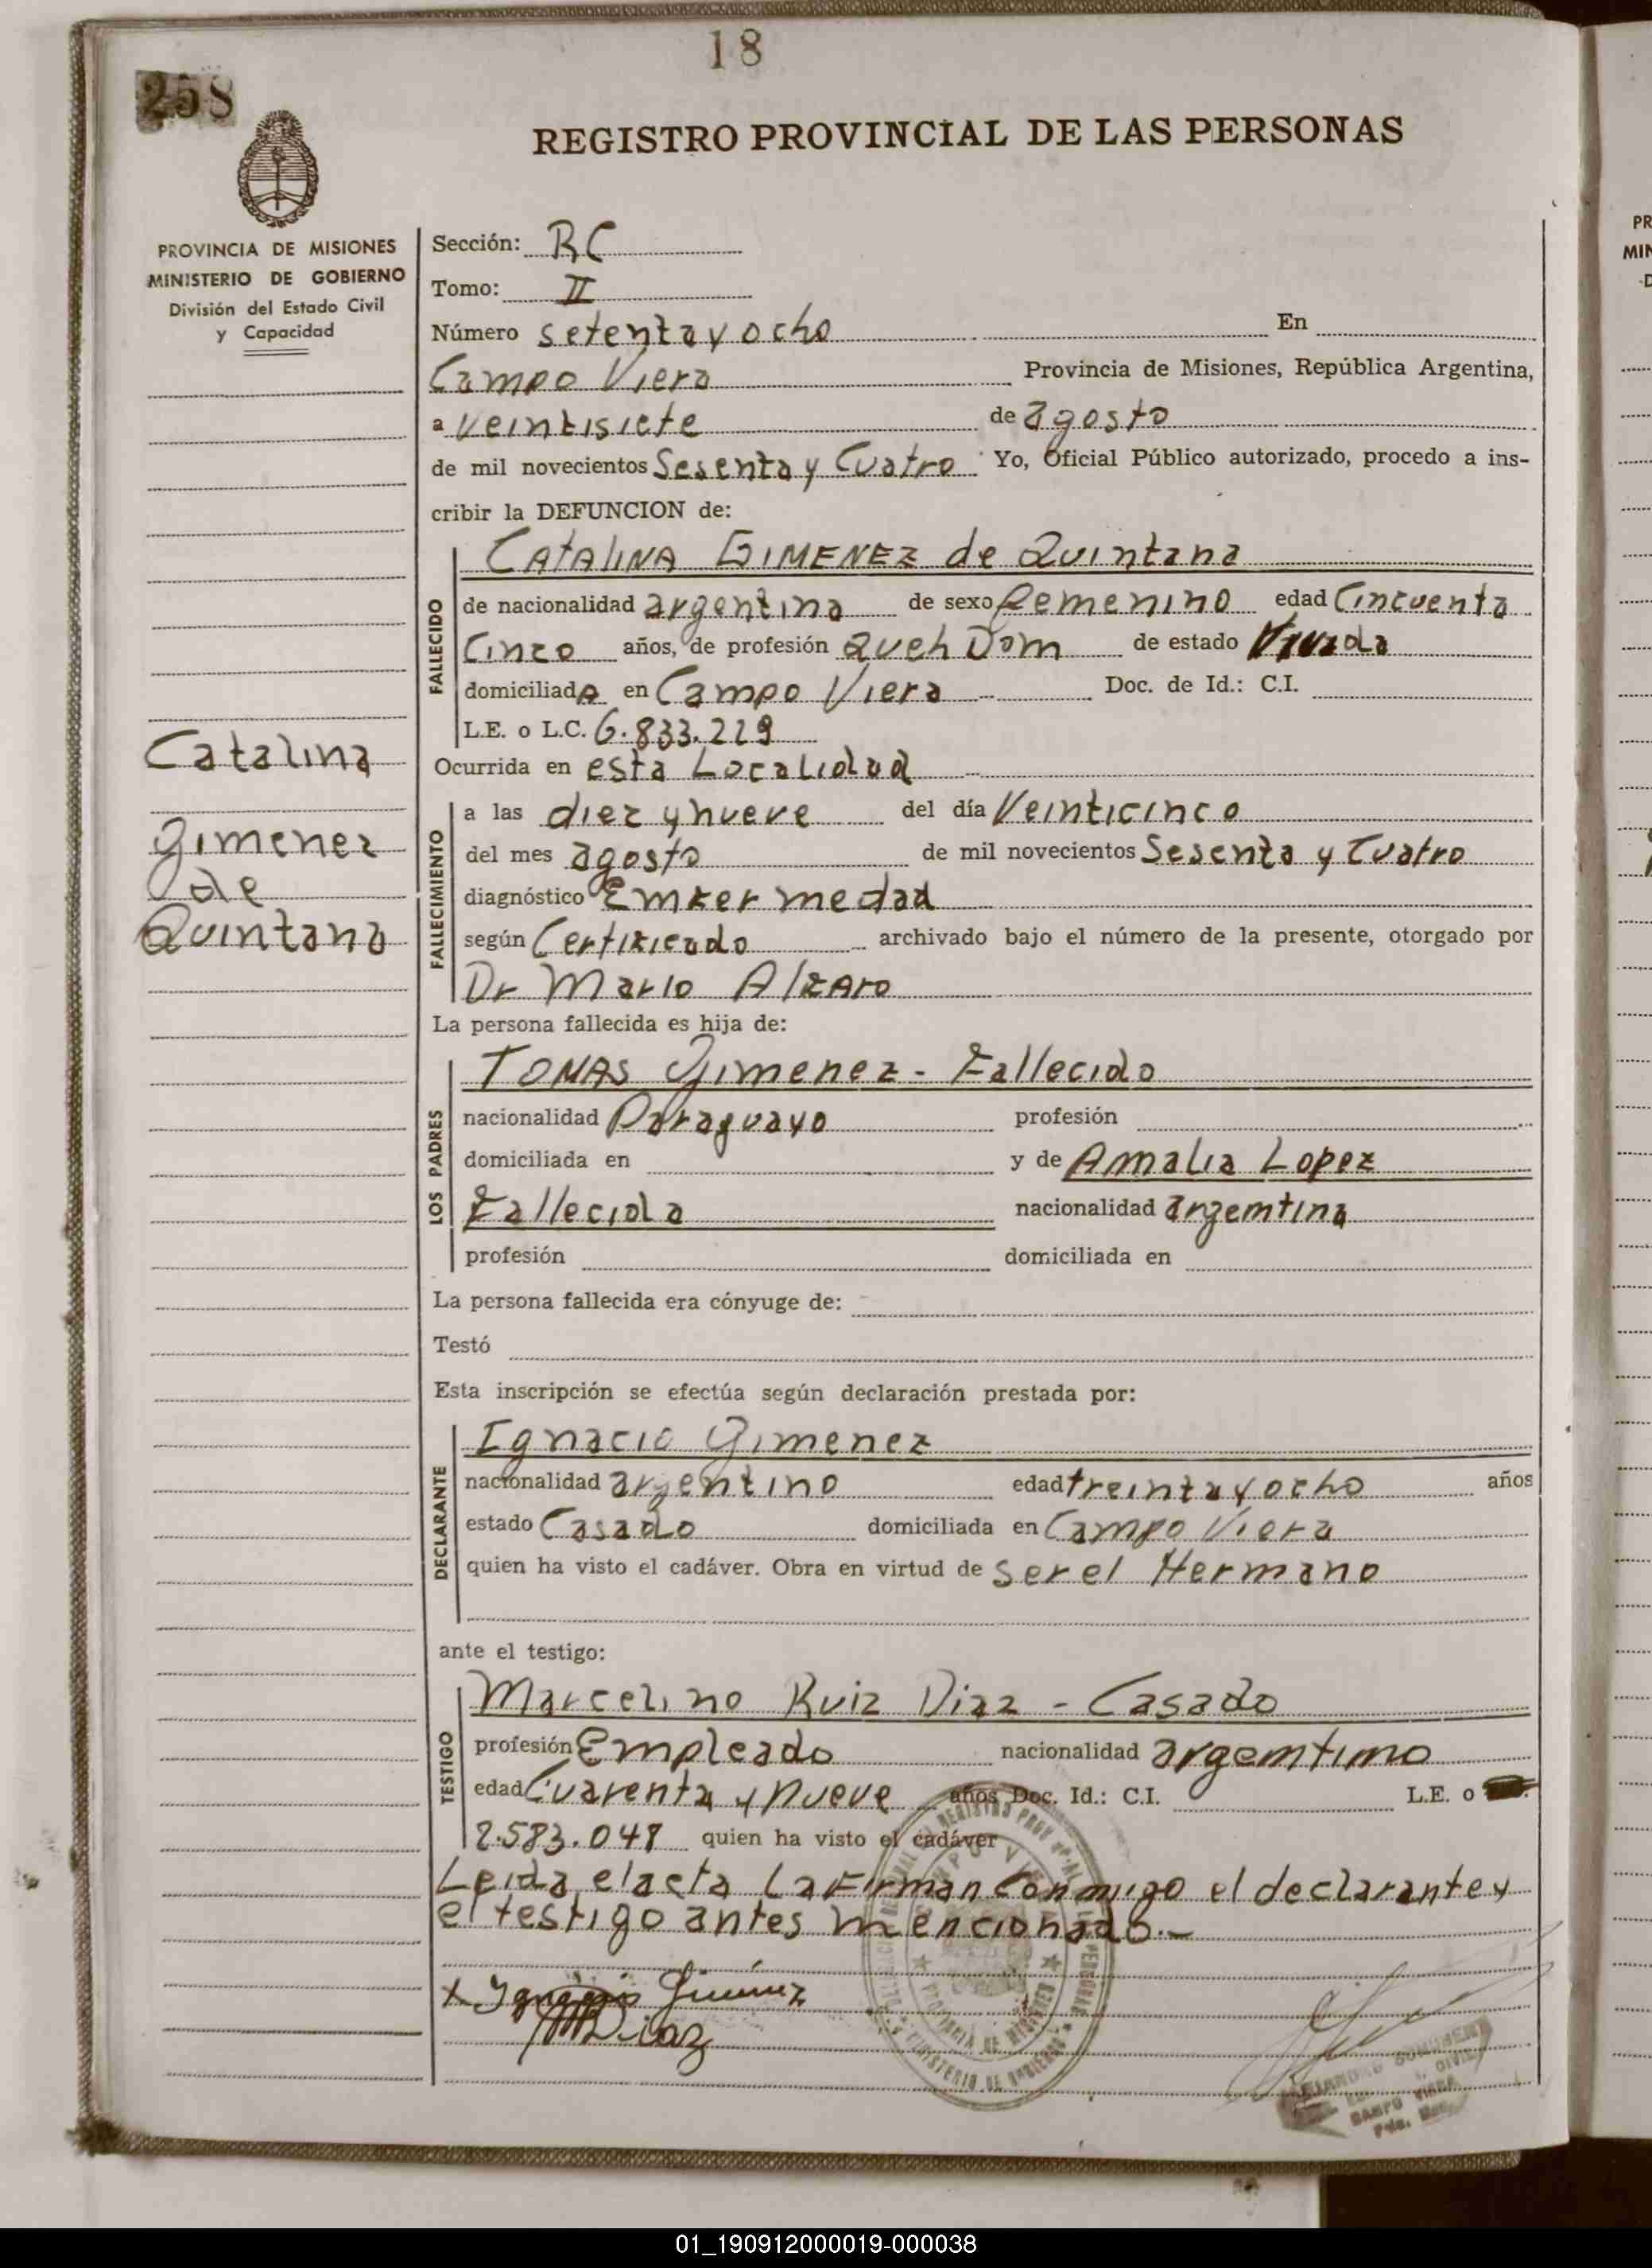 18
258
REGISTRO PROVINCIAL DE LAS PERSONAS
PROVINCIA DE MISIONES
MINISTERIO DE GOBIERNO
División del Estado Civil
y Capacidad
Sección: RC
Tomo: II
Número setenta y ocho En
Campo Viera Provincia de Misiones, República Argentina,
a veintisiete de agosto
de mil novecientos Sesenta y Cuatro Yo, Oficial Público autorizado, procedo a ins-
cribir la DEFUNCION de:
CATALINA GIMENEZ de Quintana
FALLECIDO
de nacionalidad argentina de sexo femenino edad Cincuenta
Cinco años, de profesión Queh Dom de estado Viuda
domiciliada en Campo Viera Doc. de Id.: C.I.
L.E. o L.C. 6.833.229
Catalina
Gimenez
de
Quintana
Ocurrida en esta Localidad
FALLECIMIENTO
a las diez y nueve del día Veinticinco
del mes agosto de mil novecientos Sesenta y Cuatro
diagnóstico Emfermedad
según Certificado archivado bajo el número de la presente, otorgado por
Dr Mario Alfaro
La persona fallecida es hija de:
LOS PADRES
TOMAS Gimenez - Fallecido
nacionalidad Paraguayo profesión
domiciliada en y de Amalia Lopez
Fallecida nacionalidad argemtina
profesión domiciliada en
La persona fallecida era cónyuge de:
Testó
Esta inscripción se efectúa según declaración prestada por:
DECLARANTE
Ignacio Gimenez
nacionalidad argentino edad treinta y ocho años
estado Casado domiciliada en Campo Viera
quien ha visto el cadáver. Obra en virtud de ser el Hermano
ante el testigo:
TESTIGO
Marcelino Ruiz Diaz - Casado
profesión Empleado nacionalidad argemtimo
edad Cuarenta y Nueve años Doc. Id.: C.I. L.E. o
2.583.047 quien ha visto el cadáver
Leida el acta la Firman Conmigo el declarante y
el testigo antes mencionado.-
x Ignacio Gimenez
Diaz
CAMPO VIERA
01_190912000019-000038